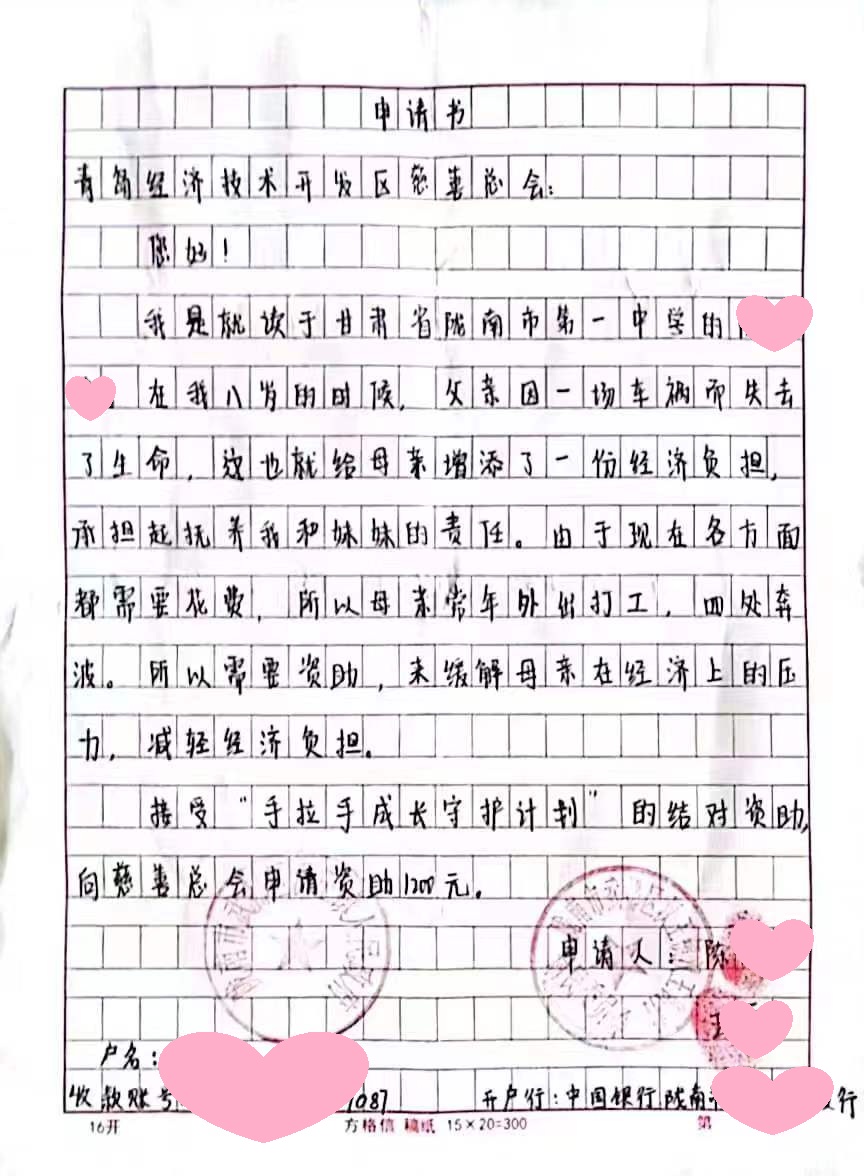 申请书
青岛经济技术开发区慈善总会:
您好!
我是就读于甘肃省陇南市第一中学的
在我八岁的时候, 父亲因一场车祸而失去
了生命, 这也就给母亲增添了一份经济负担,
承担起抚养我和妹妹的责任。由于现在各方面
都需要花费, 所以母亲常年外出打工, 四处奔
波。所以需要资助, 来缓解母亲在经济上的压
力, 减轻经济负担。
接受“手拉手成长守护计划”的结对资助,
向慈善总会申请资助1200元。
申请人: 陈
王
户名:
收款账号 1087 开户行: 中国银行陇南 行
16开 方格信 稿纸 15×20=300 第